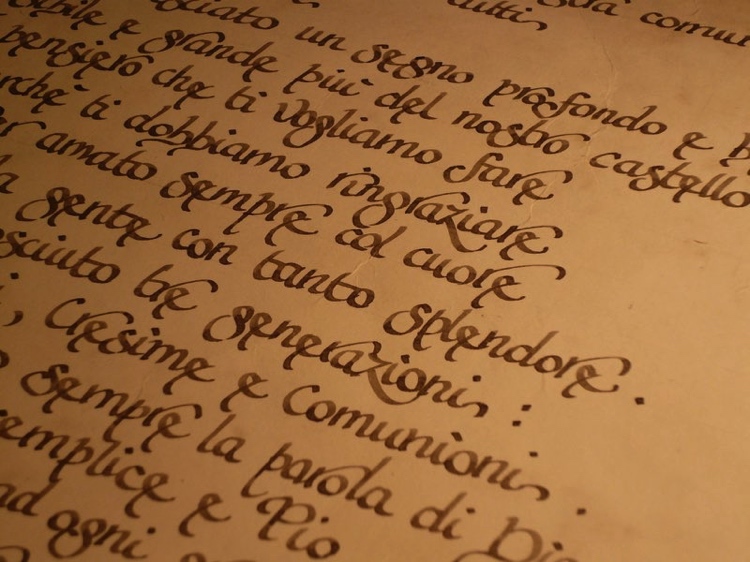 tutti
un segno profondo e
e grande più del nostro castello
pensiero che ti vogliamo fare
ti dobbiamo ringraziare
amato sempre col cuore
gente con tanto splendore.
tre generazioni:
cresime e comunioni.
sempre la parola di
e Pio
ad ogni